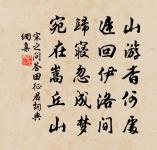 出游杳何處
遲回伊洛間
歸寢忽成夢
宛在嵩丘山
宋之問答田征君詞典
網集